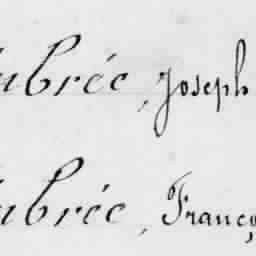 ubrée, Joseph
ubrée, Franço